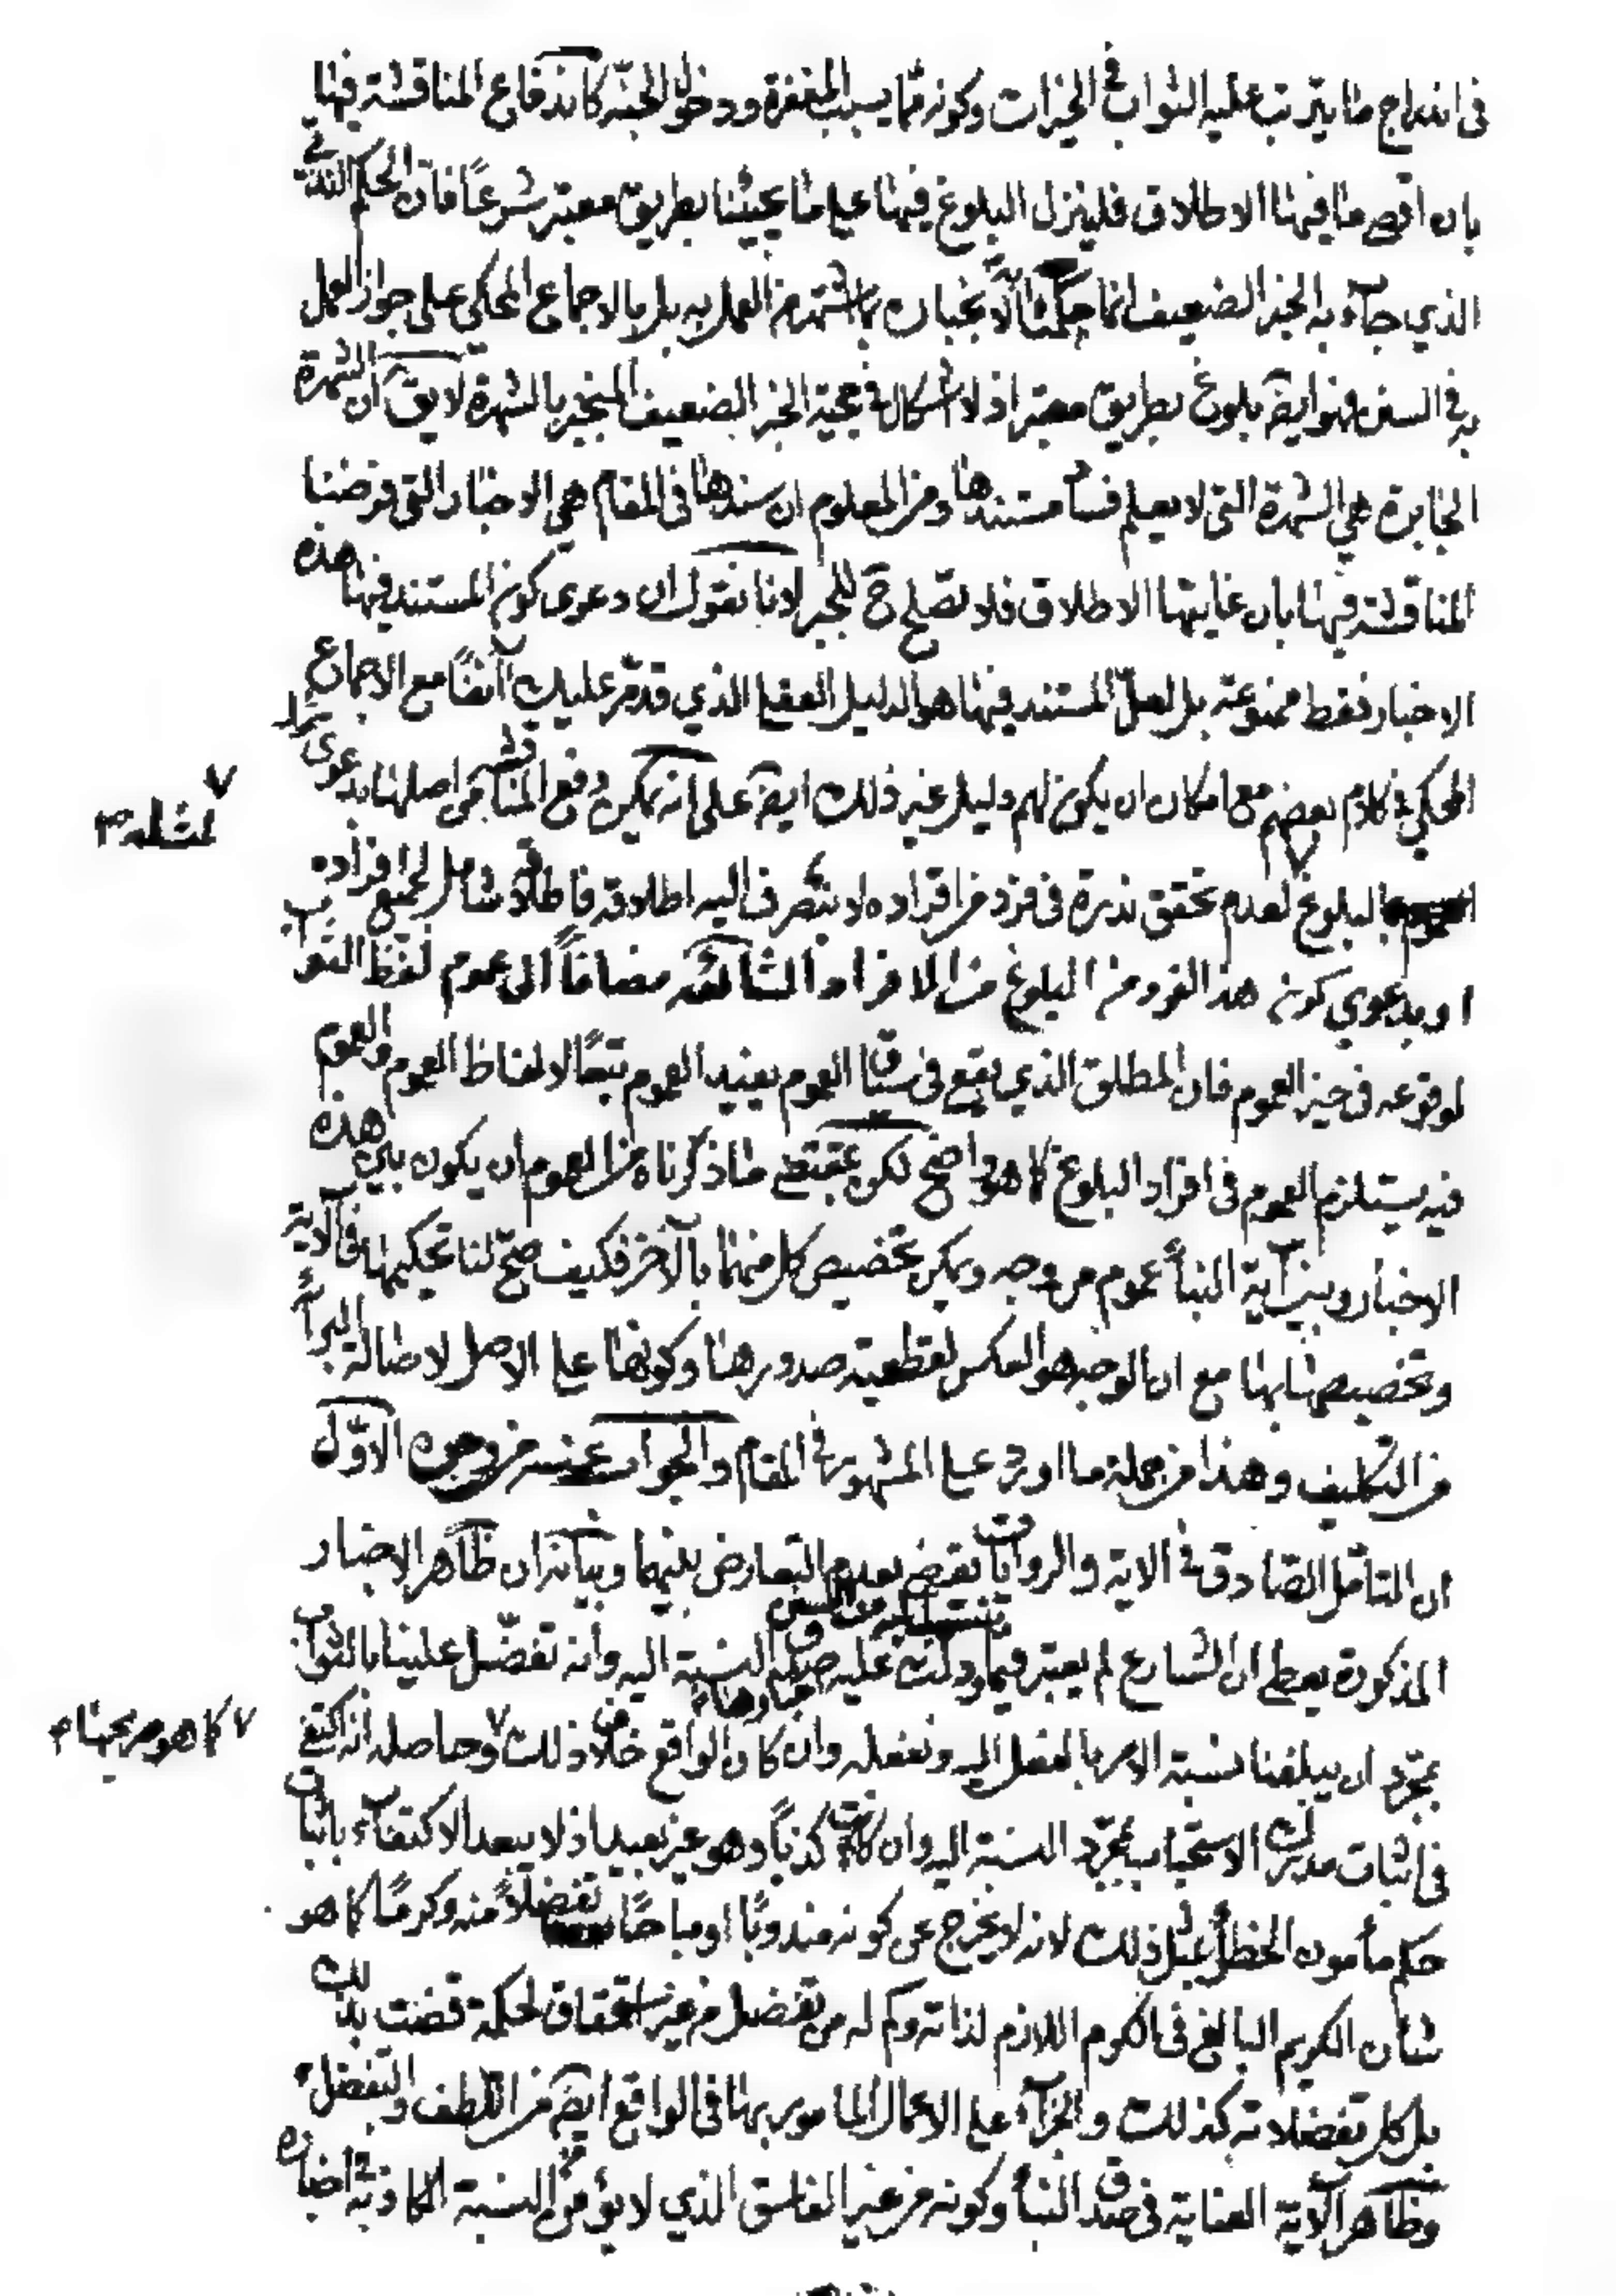 فى اندراج ما يترتب عليه الثواب فى الخيرات وكونه مما يسبب المغفرة ودخول الجنة كاندفاع المناقشة فيها
بان اقصى ما فيها الاطلاق فلينزل البلوغ فيها على ما يجيئنا بطريق معتبر شرعاً فان الحكم الندبى
الذي جاء به الخبر الضعيف انما حكمنا به لانجباره بما اشتهر من العمل به بل بالاجماع المحكي على جواز العمل
به فى السنن فهو ايضً بلوغ بطريق معتبر اذ لا اشكال فى حجية الخبر الضعيف المنجبر بالشهرة لا يقَ ان الشهرة
الجابرة هي الشهرة التى لا يعلم فساد مستندها ومن المعلوم ان سندها فى المقام هى الاخبار التى فرضنا
المناقشة فيها بان غايتها الاطلاق فلا تصلح حَ للجبر لانا نقول ان دعوى كون المستند فيها هذه
الاخبار فقط ممنوعة بل لعل المستند فيها هو الدليل العقلي الذي قد مر عليك آنفاً مع الاجماع
المحكي فى كلام بعضهم مع امكان ان يكون لهم دليل غير ذلك ايضً على انه يمكن دفع المناقشة من اصلها بدعوى
لمثله
بالبلوغ لعدم تحقق ندرة فى فرد من افراده لا ينصرف اليه اطلاقه فاطلاقه شامل لجميع افراده
او بدعوي كون هذا الفرد من البلوغ من الافراد الشائعة مضافاً الى عموم لفظ الثواب
لوقوعه فى حيز العموم فان المطلق الذي يقع فى سياق العموم يفيد العموم تبعاً لالفاظ العموم والعموم
فيه يستلزم العموم فى افراد البلوغ كما هو واضح لكن مقتضى ما ذكرناه من العموم ان يكون بين هذه
الاخبار وبين آية النبأ عموم من وجه ويمكن تخصيص كل منهما بالآخر فكيف صح لنا تحكيمها فى الآية
وتخصيصها بها مع ان الوجه هو العكس لقطعية صدورها وكونها على الاصل لاصالة البرائة
من التكليف وهذا من جملة ما اورد على المشهور فى المقام والجواب عنه من وجوه الاوّل
ان المتأمل الصادق فى الاية والروايات يقضى بعدم التعارض بينهما وبيانه ان ظاهر الاخبار
المذكورة يعطى ان الشارع لم يعتبر فيما دلت عليه صدق النسبة اليه وانه تفضّل علينا بالثواب
بمجرّد ان يبلغنا نسبة الامر بالفعل اليه ونفعله وان كان الواقع خلاف ذلك وحاصله انه اكتفى
كما هو صريحها
فى اثبات مدرك الاستحباب بمجرّد النسبة اليه وان كانت كذباً وهو غير بعيد اذ لا يبعد الاكتفاء باثبات
حكم مأمون الخطأ بمثل ذلك لانه لا يخرج عن كونه مندوبًا او مباحًا تفضلاً منه وكرمًا كما هو
شأن الكريم البالغ فى الكرم اللازم لذاته وكم له من تفضل من غير استحقاق لحكمة قضت بذلك
بل كل تفضلاته كذلك والجزاء على الاعمال المامور بها فى الواقع ايضً من اللطف والتفضل
وظاهر الآية العناية فى صدق النبأ وكونه من غير الفاسق الذي لا يؤمن النسبة الكاذبة فى اخباره